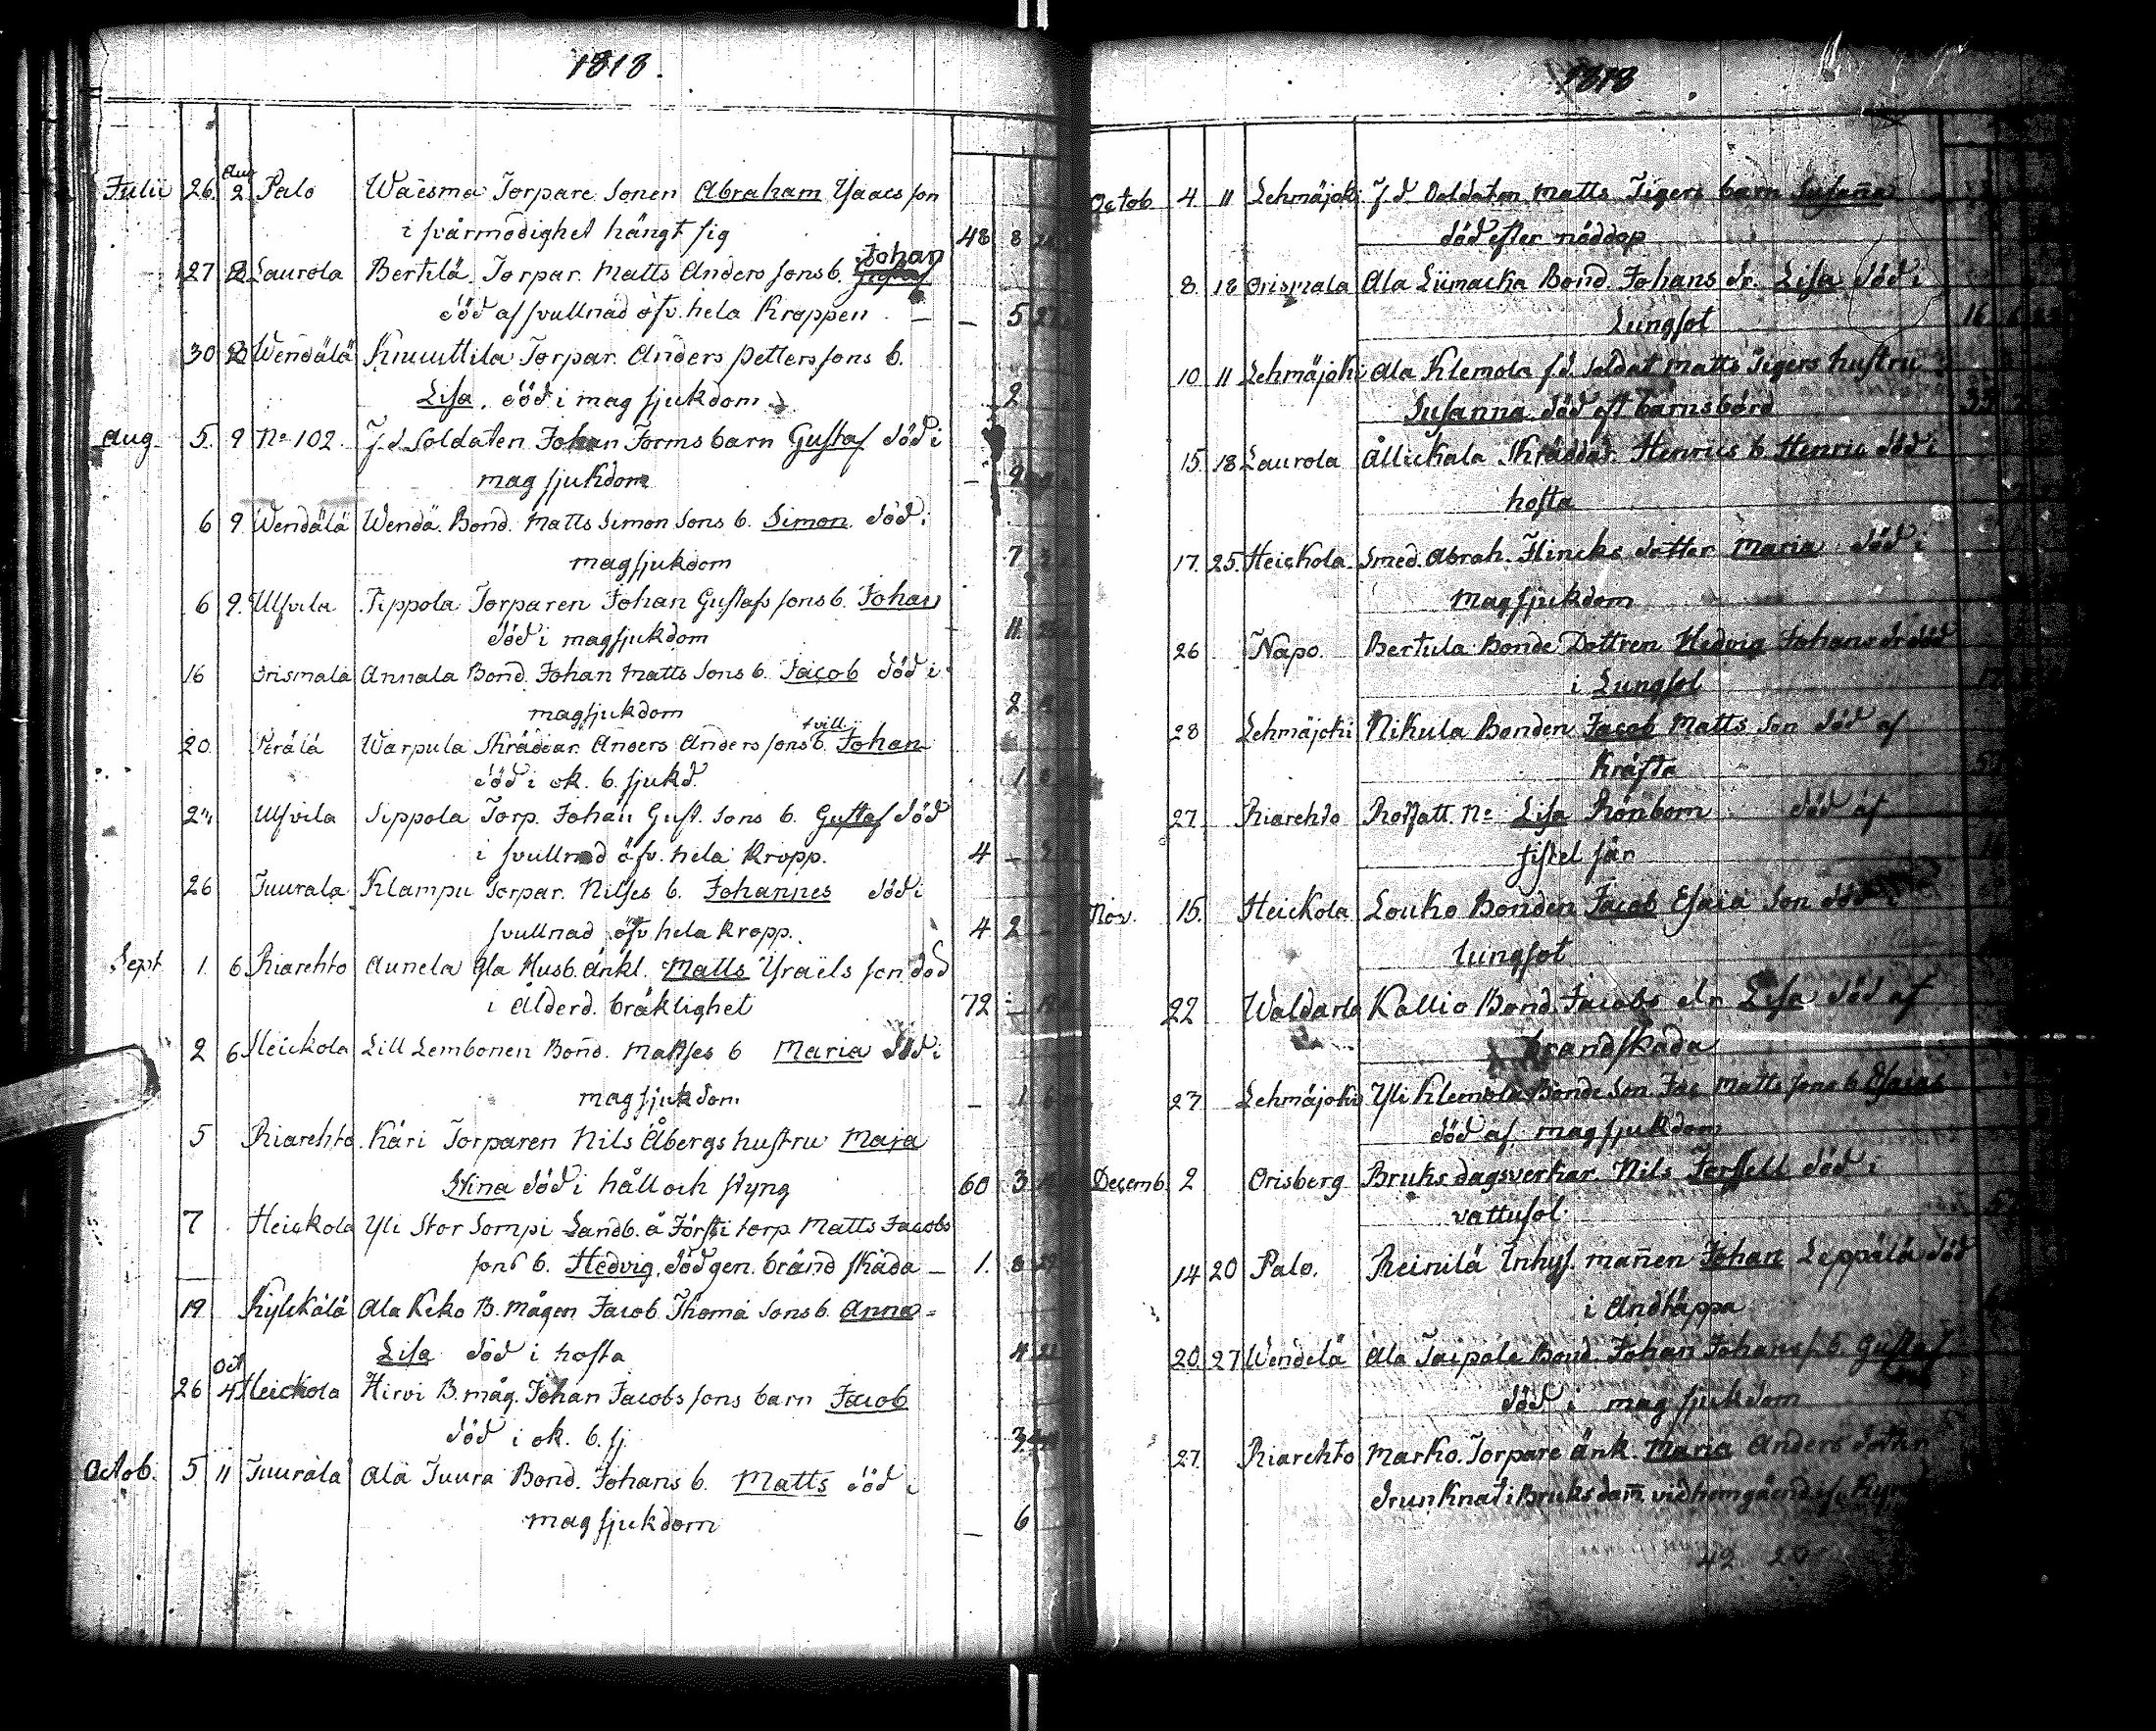 1818.
Aug
Julii 26. 2 Palo Waisma Torpare Sonen Abraham Ysaacs son
i svårmodighet hängt sig 48 8
Johan
27 2 Laurola Bertilä Torpar. Matts Anders sons b.
död af svullnad öfv. hela Kroppen — — 5 27
30 2 Wendälä Knuuttila Torpar. Anders Petters sons b.
Lisa, död i mag sjukdom 2
Aug. 5. 9 No 102. F.d Soldaten Johan Forms barn Gustaf död i
mag sjukdom — 9
6 9 Wendälä Wendä Bond. Matts Simon Sons b. Simon död i
magsjukdom 7
6 9. Ulfvila Sippola Torparen Johan Gustafs sons b. Johan
död i magsjukdom 11
16 Orismala Annala Bond. Johan Matts Sons b. Jacob död i
magsjukdom 2
tvill.
20 Perälä Warpula Skräddar. Anders Anders sons b. Johan
död i ok. b. sjukd. 1
24 Ulfvila Sippola Torp. Johan Gust. Sons b. Gustaf död
i svullnad öfv. hela Kropp. 4 —
26 Juurala Klampu Torpar. Nilses b. Johannes död i
svullnad öfv. hela kropp. 4 2 —
Sept 1. 6 Riarehto Aunela gla Husb. änkl. Matts Ysraels son död
i Ålderd. bräklighet 72 —
2 6 Heickola Lill Lembonen Bond. Mattses b Maria död i
magsjukdom — 1 6
5 Riarehto Käri Torparen Nils Åbergs hustru Maja
Stina död i håll och styng 60 3
7 Heickola Yli Stor Sompi Landb. å Försti torp Matts Jacobs
sons b. Hedvig, död gen. bränd skada — 1. 8
19 Kylckälä Ala Keko B. mågen Jacob Thoma Sons b. Anna=
Lisa död i hosta 4 21
Oct
26 4 Heickola Hirvi B. måg. Johan Jacobs sons barn Jacob
död i ok. b. sj. 3
Octob. 5 11 Juurala Ala Juura Bond. Johans b. Matts död i
mag sjukdom — 6
1818
Octob 4 11 Lehmäjoki F.d Soldaten Matts Tigers barn Susanna
död efter nöddop
8 18 Orismala Ala Liimacka Bond. Johans dr. Lisa död i
Lungsot 16
10 11 Lehmäjoki Ala Klemola f.d. Soldat Matts Tigers hustru
Susanna död eft barnsbörd 35
15 18 Laurola Ållickala Skräddar. Henrics b. Henric död i
hosta
17. 25. Heickola Smed. Abrah. Flincks dotter Maria död i
Magsjukdom
26 Napo. Bertula Bonde Dottren Hedvig Johans dr död
i Lungsot
28 Lehmäjoki Nikula Bonden Jacob Matts Son död af
Kräfta
27 Riarehto Rotfatt. No Lisa Rönbom död af
fistel sår
Nov. 15. Heickola Louko Bonden Jacob Esaia Son död i
lungsot
22 Waldarla Kallio Bond. Jacobs dr Lisa död af
brandskada
27 Lehmäjoki Yli Klemola Bonde Son Jac Matts sons b Esaias
död af magsjukdom
Decemb. 2 Orisberg Bruks dagsverkar. Nils Forssell död i
vattusot
14 20 Palo. Reinilä Inhys. mannen Johan Leppälä död
i Andtäppa
20 27 Wendelä Ala Taipale Bond. Johan Johans s. b. Gustaf
död i mag sjukdom
27 Riarehto Marko Torpare änk. Maria Anders dotter
drunknat i Bruks dam vid hemgåend. if. Kyr
42 20